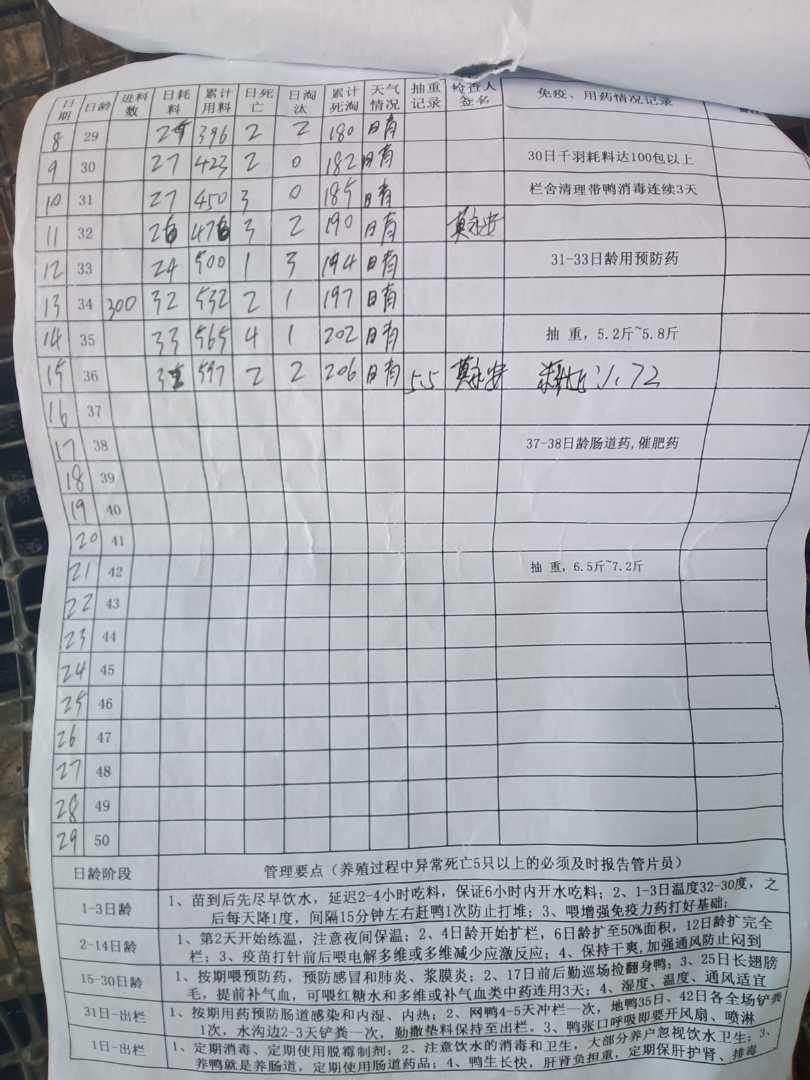 日期 日龄 进料数 日耗料 累计用料 日死亡 日淘汰 累计死淘 天气情况 抽重记录 检查人签名 免疫、用药情况记录
8 29 396 2 2 180 日有
9 30 27 423 2 0 182 日有 30日千羽耗料达100包以上
10 31 27 450 3 0 185 日有 栏舍清理带鸭消毒连续3天
11 32 26 476 3 2 190 日有 莫永安
12 33 24 500 1 3 194 日有 31-33日龄用预防药
13 34 300 32 532 2 1 197 日有
14 35 33 565 4 1 202 日有 抽 重，5.2斤~5.8斤
15 36 597 2 2 206 日有 5.5 莫永安 1.72
16 37
17 38 37-38日龄肠道药,催肥药
18 39
19 40
20 41
21 42 抽 重，6.5斤~7.2斤
22 43
23 44
24 45
25 46
26 47
27 48
28 49
29 50
日龄阶段 管理要点（养殖过程中异常死亡5只以上的必须及时报告管片员）
1-3日龄 1、苗到后先尽早饮水，延迟2-4小时吃料，保证6小时内开水吃料；2、1-3日温度32-30度，之
后每天降1度，间隔15分钟左右赶鸭1次防止打堆；3、喂增强免疫力药打好基础;
2-14日龄 1、第2天开始练温，注意夜间保温；2、4日龄开始扩栏，6日龄扩至50%面积，12日龄扩完全
栏；3、疫苗打针前后喂电解多维或多维减少应激反应；4、保持干爽,加强通风防止闷到
15-30日龄 1、按期喂预防药，预防感冒和肺炎、浆膜炎；2、17日前后勤巡场捡翻身鸭；3、25日长翅膀
毛，提前补气血，可喂红糖水和多维或补气血类中药连用3天；4、湿度、温度、通风适宜
31日-出栏 1、按期用药预防肠道感染和内湿、内热；2、网鸭4-5天冲栏一次，地鸭35日、42日各全场铲粪
1次，水沟边2-3天铲粪一次，勤撒垫料保持至出栏。3、鸭张口呼吸即要开风扇、喷淋
1日-出栏 1、定期消毒、定期使用脱霉制剂；2、注意饮水的消毒和卫生，大部分养户忽视饮水卫生；3、
养鸭就是养肠道，定期使用肠道药品；4、鸭生长快，肝肾负担重，定期保肝护肾、排毒